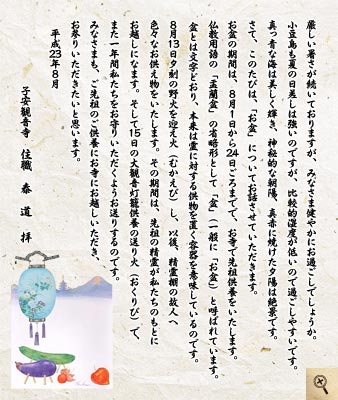 厳しい暑さが続いておりますが、みなさま健やかにお過ごしでしょうか。
小豆島も夏の日差しは強いのですが、比較的湿度が低いので過ごしやすいです。
真っ青な海は美しく輝き、神秘的な朝陽、真赤に焼けた夕陽は絶景です。
さて、このたびは、「お盆」についてお話させていただきます。
お盆の期間は、８月１日から２４日ごろまでで、お寺で先祖供養をいたします。
仏教用語の「盂蘭盆」の省略形として「盆」（一般に「お盆」）と呼ばれています。
盆とは文字どおり、本来は霊に対する供物を置く容器を意味しているのです。
８月１３日夕刻の野火を迎え火（むかえび）し、以後、精霊棚の故人へ
色々なお供え物をいたします。その期間は、先祖の精霊が私たちのもとに
お越しになます。そして１５日の大観音灯籠供養の送り火（おくりび）で、
また一年間私たちをお守りいただくようお送りするのです。
みなさまも、ご先祖のご供養にお寺にお越しいただき、
お参りいただきたいと思います。
平成２３年８月
子安観音寺　住職　泰道　拝